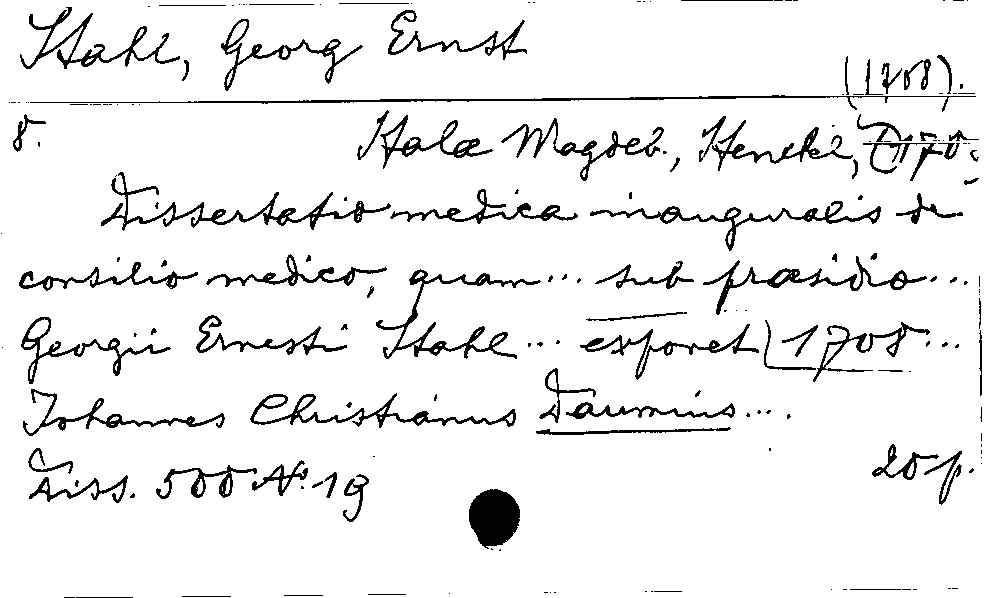 Stahl, Georg Ernst
(1708).
8. Halæ Magdeb., Henckel, (170
Dissertatio medica inauguralis de
consilio medico, quam... sub præsidio...
Georgii Ernesti Stahl... exponet 1708...
Johannes Christianus Daumius....
Diss. 500 No. 19 20 p.